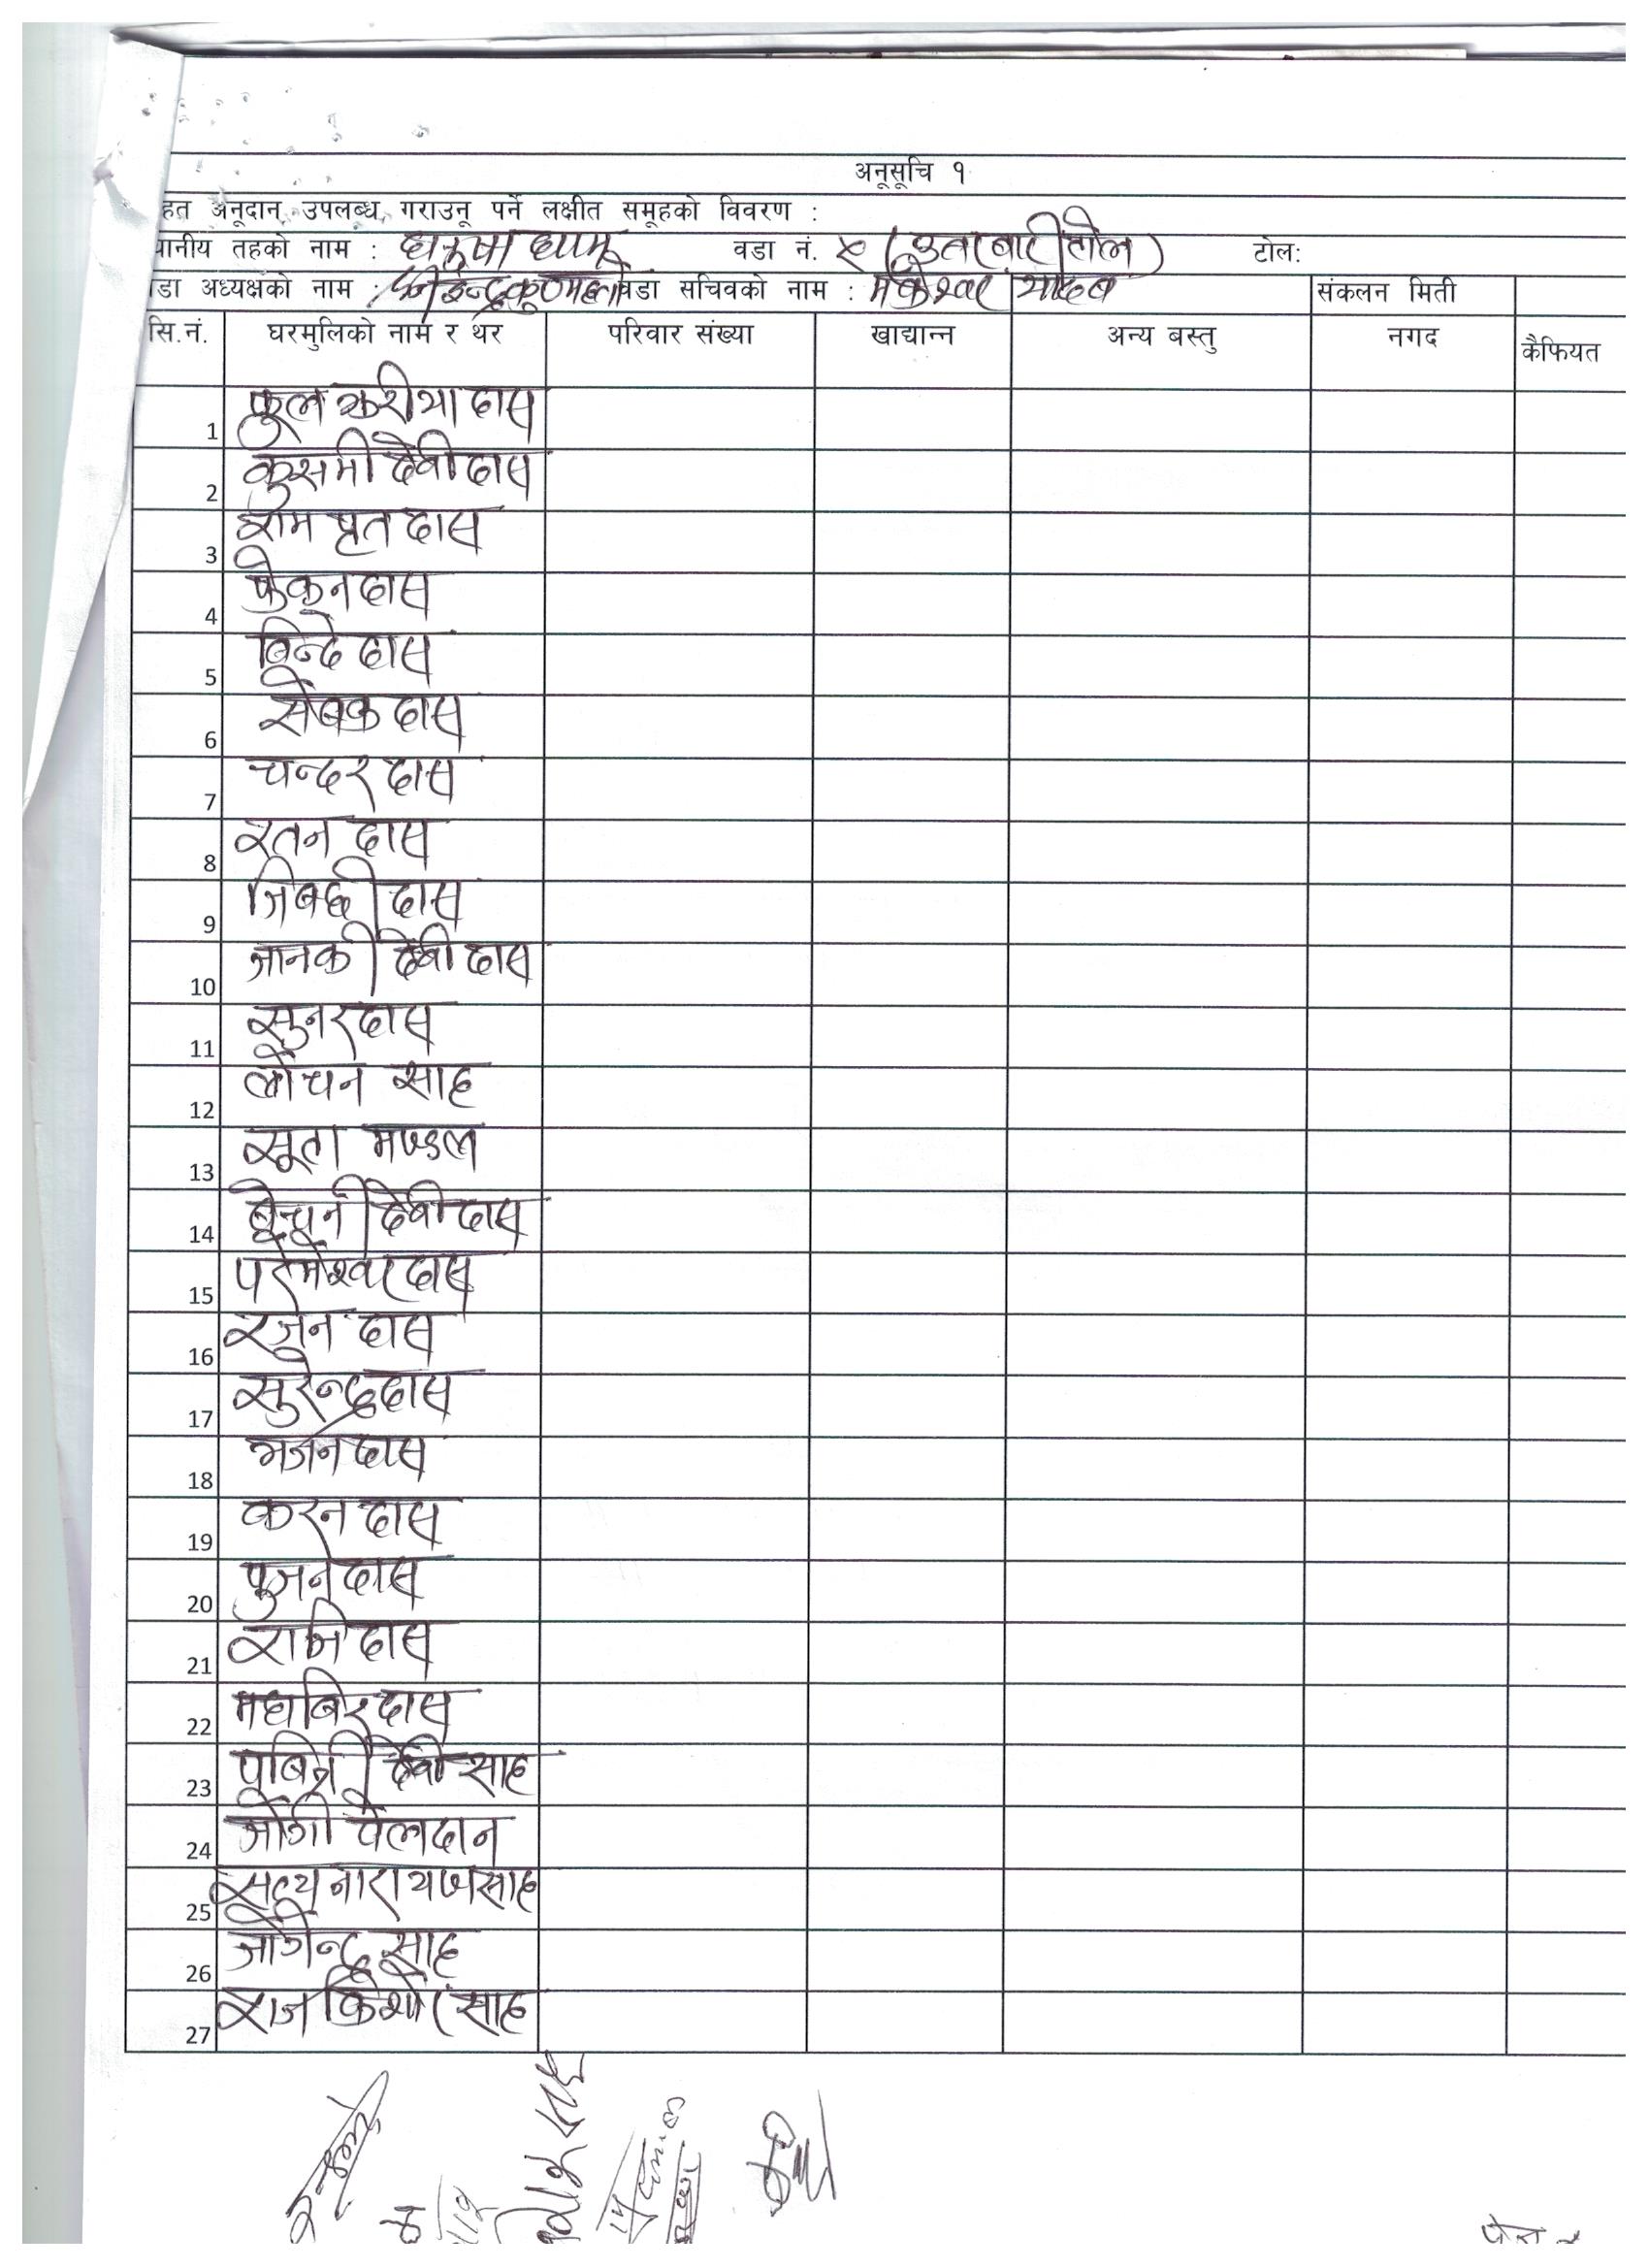 अनूसूचि १
हत अनूदान उपलब्ध गराउनू पर्ने लक्षीत समूहको विवरण :
थानीय तहको नाम : धनुषा धाम वडा नं. ४ (उतरबारी टोल) टोल:
डा अध्यक्षको नाम : वडा सचिवको नाम : यादब संकलन मिती
सि.नं. घरमुलिको नाम र थर परिवार संख्या खाद्यान्न अन्य बस्तु नगद कैफियत
1 फुल झरीया दास
2 कुसमी देबी दास
3 राम पृत दास
4 फेकुन दास
5 बिन्दे दास
6 सेबक दास
7 चन्दर दास
8 रतन दास
9 जिबछी दास
10 जानकी देबी दास
11 सुनर दास
12 लोचन साह
13 सूता मण्डल
14 बेचनी देबी दास
15 परमेश्वर दास
16 रजुन दास
17 सुरेन्द्र दास
18 भजन दास
19 करन दास
20 पुजन दास
21 दास
22 महाबिर दास
23 पबित्री देबी साह
24 जोगी
25 सत्य नारायण साह
26 जोगेन्द्र साह
27 राज किशोर साह